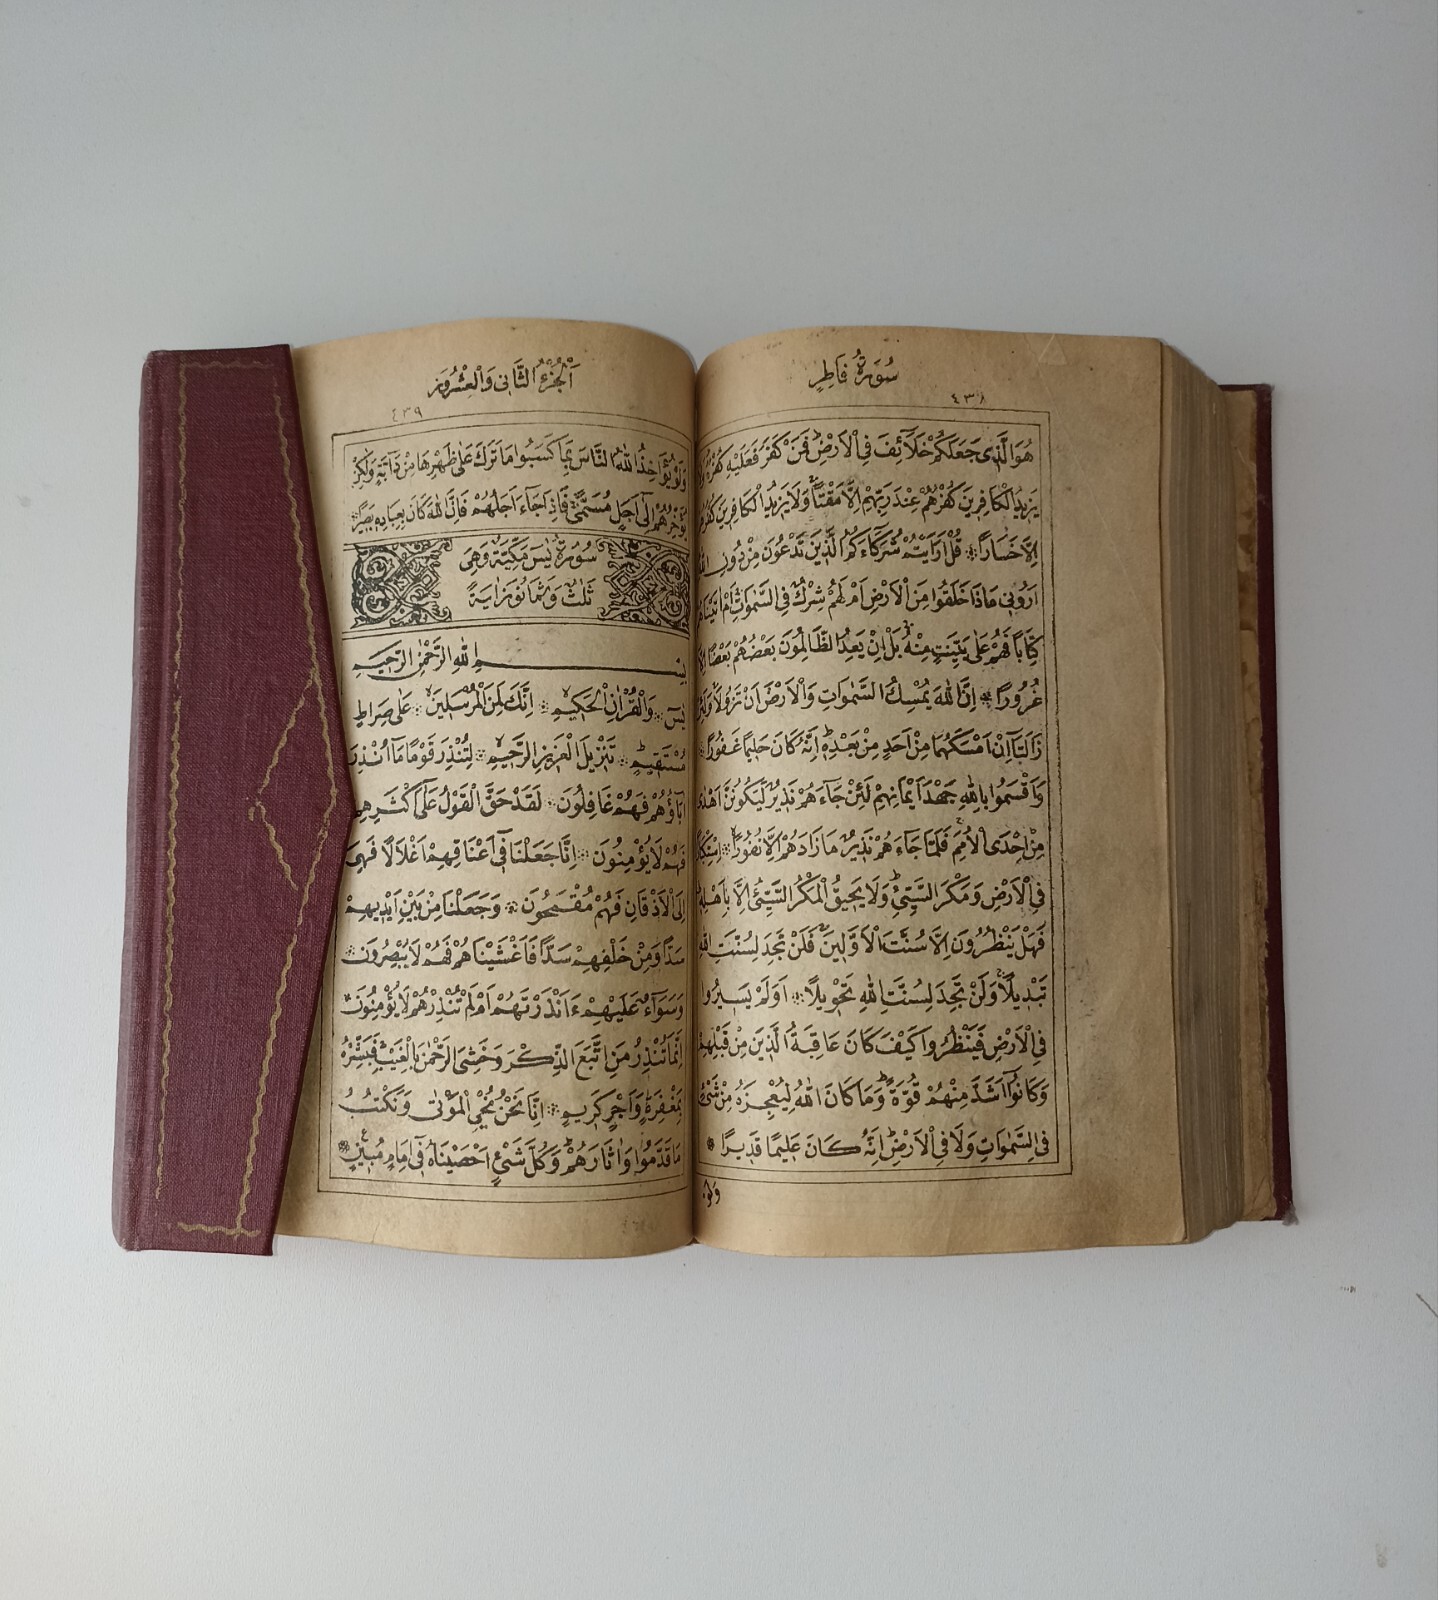 سُورَةُ فَاطِرٍ
٤٣٨
هُوَ الَّذِى جَعَلَكُمْ خَلَآئِفَ فِى الْاَرْضِ فَمَنْ كَفَرَ فَعَلَيْهِ كُفْرُهُ وَلَا
يَزِيدُ الْكَافِرِينَ كُفْرُهُمْ عِنْدَ رَبِّهِمْ اِلَّا مَقْتًا وَلَا يَزِيدُ الْكَافِرِينَ كُفْرُهُمْ
اِلَّا خَسَارًا ۞ قُلْ اَرَاَيْتُمْ شُرَكَآءَكُمُ الَّذِينَ تَدْعُونَ مِنْ دُونِ اللّٰهِ
اَرُونِى مَاذَا خَلَقُوا مِنَ الْاَرْضِ اَمْ لَهُمْ شِرْكٌ فِى السَّمٰوَاتِ اَمْ اٰتَيْنَاهُمْ
كِتَابًا فَهُمْ عَلٰى بَيِّنَتٍ مِنْهُ بَلْ اِنْ يَعِدُ الظَّالِمُونَ بَعْضُهُمْ بَعْضًا اِلَّا
غُرُورًا ۞ اِنَّ اللّٰهَ يُمْسِكُ السَّمٰوَاتِ وَالْاَرْضَ اَنْ تَزُولَا وَلَئِنْ
زَالَتَا اِنْ اَمْسَكَهُمَا مِنْ اَحَدٍ مِنْ بَعْدِهِ اِنَّهُ كَانَ حَلِيمًا غَفُورًا ۞
وَاَقْسَمُوا بِاللّٰهِ جَهْدَ اَيْمَانِهِمْ لَئِنْ جَآءَهُمْ نَذِيرٌ لَيَكُونُنَّ اَهْدٰى
مِنْ اِحْدَى الْاُمَمِ فَلَمَّا جَآءَهُمْ نَذِيرٌ مَا زَادَهُمْ اِلَّا نُفُورًا ۞ اِسْتِكْبَارًا
فِى الْاَرْضِ وَمَكْرَ السَّيِّئِ وَلَا يَحِيقُ الْمَكْرُ السَّيِّئُ اِلَّا بِاَهْلِهِ
فَهَلْ يَنْظُرُونَ اِلَّا سُنَّتَ الْاَوَّلِينَ فَلَنْ تَجِدَ لِسُنَّتِ اللّٰهِ
تَبْدِيلًا وَلَنْ تَجِدَ لِسُنَّتِ اللّٰهِ تَحْوِيلًا ۞ اَوَلَمْ يَسِيرُوا
فِى الْاَرْضِ فَيَنْظُرُوا كَيْفَ كَانَ عَاقِبَةُ الَّذِينَ مِنْ قَبْلِهِمْ
وَكَانُوا اَشَدَّ مِنْهُمْ قُوَّةً وَمَا كَانَ اللّٰهُ لِيُعْجِزَهُ مِنْ شَىْءٍ
فِى السَّمٰوَاتِ وَلَا فِى الْاَرْضِ اِنَّهُ كَانَ عَلِيمًا قَدِيرًا ۞
وَلَوْ
اَلْجُزْءُ الثَّانِى وَالْعِشْرُونَ
٤٣٩
وَلَوْ يُؤَاخِذُ اللّٰهُ النَّاسَ بِمَا كَسَبُوا مَا تَرَكَ عَلٰى ظَهْرِهَا مِنْ دَآبَّةٍ وَلٰكِنْ
يُؤَخِّرُهُمْ اِلٰى اَجَلٍ مُسَمًّى فَاِذَا جَآءَ اَجَلُهُمْ فَاِنَّ اللّٰهَ كَانَ بِعِبَادِهِ بَصِيرًا ۞
سُورَةُ يٰسٓ مَكِّيَّةٌ وَهِىَ
ثَلٰثٌ وَثَمَانُونَ اٰيَةً
بِسْمِ اللّٰهِ الرَّحْمٰنِ الرَّحِيمِ
يٰسٓ ۞ وَالْقُرْاٰنِ الْحَكِيمِ ۞ اِنَّكَ لَمِنَ الْمُرْسَلِينَ ۞ عَلٰى صِرَاطٍ
مُسْتَقِيمٍ ۞ تَنْزِيلَ الْعَزِيزِ الرَّحِيمِ ۞ لِتُنْذِرَ قَوْمًا مَا اُنْذِرَ
اٰبَآؤُهُمْ فَهُمْ غَافِلُونَ ۞ لَقَدْ حَقَّ الْقَوْلُ عَلٰى اَكْثَرِهِمْ
فَهُمْ لَا يُؤْمِنُونَ ۞ اِنَّا جَعَلْنَا فِى اَعْنَاقِهِمْ اَغْلَالًا فَهِىَ
اِلَى الْاَذْقَانِ فَهُمْ مُقْمَحُونَ ۞ وَجَعَلْنَا مِنْ بَيْنِ اَيْدِيهِمْ
سَدًّا وَمِنْ خَلْفِهِمْ سَدًّا فَاَغْشَيْنَاهُمْ فَهُمْ لَا يُبْصِرُونَ ۞
وَسَوَآءٌ عَلَيْهِمْ ءَاَنْذَرْتَهُمْ اَمْ لَمْ تُنْذِرْهُمْ لَا يُؤْمِنُونَ ۞
اِنَّمَا تُنْذِرُ مَنِ اتَّبَعَ الذِّكْرَ وَخَشِىَ الرَّحْمٰنَ بِالْغَيْبِ فَبَشِّرْهُ
بِمَغْفِرَةٍ وَاَجْرٍ كَرِيمٍ ۞ اِنَّا نَحْنُ نُحْيِى الْمَوْتٰى وَنَكْتُبُ
مَا قَدَّمُوا وَاٰثَارَهُمْ وَكُلَّ شَىْءٍ اَحْصَيْنَاهُ فِى اِمَامٍ مُبِينٍ ۞